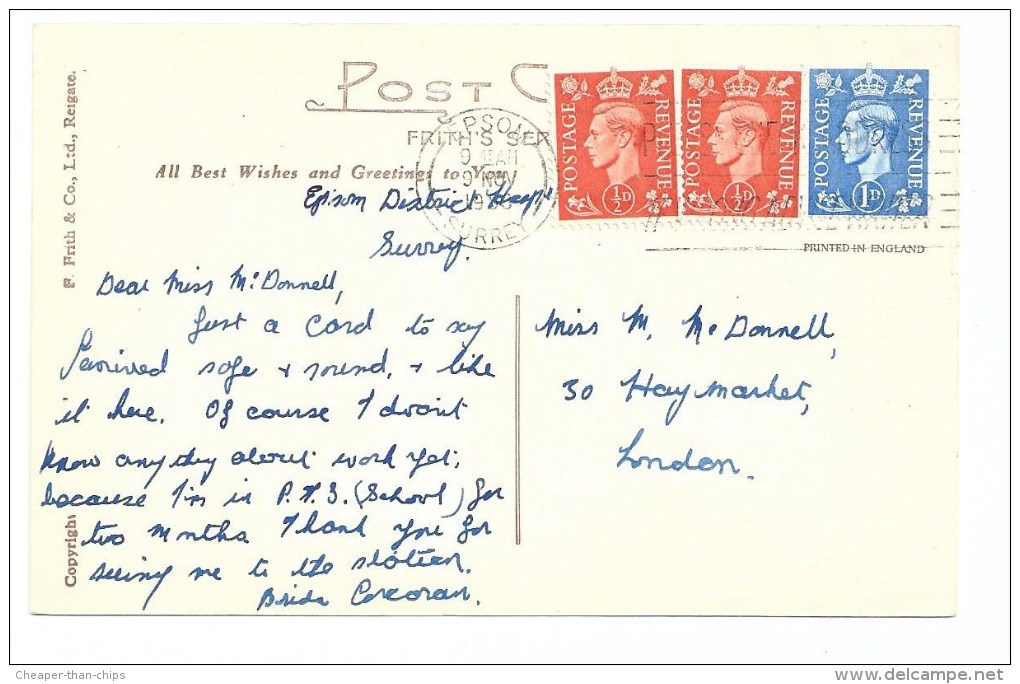 POST C
FRITH'S SER
EPSOM
9 NOV
SURREY
POSTAGE REVENUE
½D
POSTAGE REVENUE
½D
POSTAGE REVENUE
1D
PRINTED IN ENGLAND
All Best Wishes and Greetings to You
Epsom District Hospt
Surrey.
Dear Miss McDonnell,
Just a Card to say
I arrived safe + sound, + like
it here. Of course I don't
know anything about work yet,
because I'm in P.T.S. (School) for
two months. Thank you for
seeing me to the station.
Brida Corcoran.
Miss M. McDonnell,
30 Haymarket,
London.
Copyright
F. Frith & Co., Ltd., Reigate.
Cheaper-than-chips
www.delcampe.net